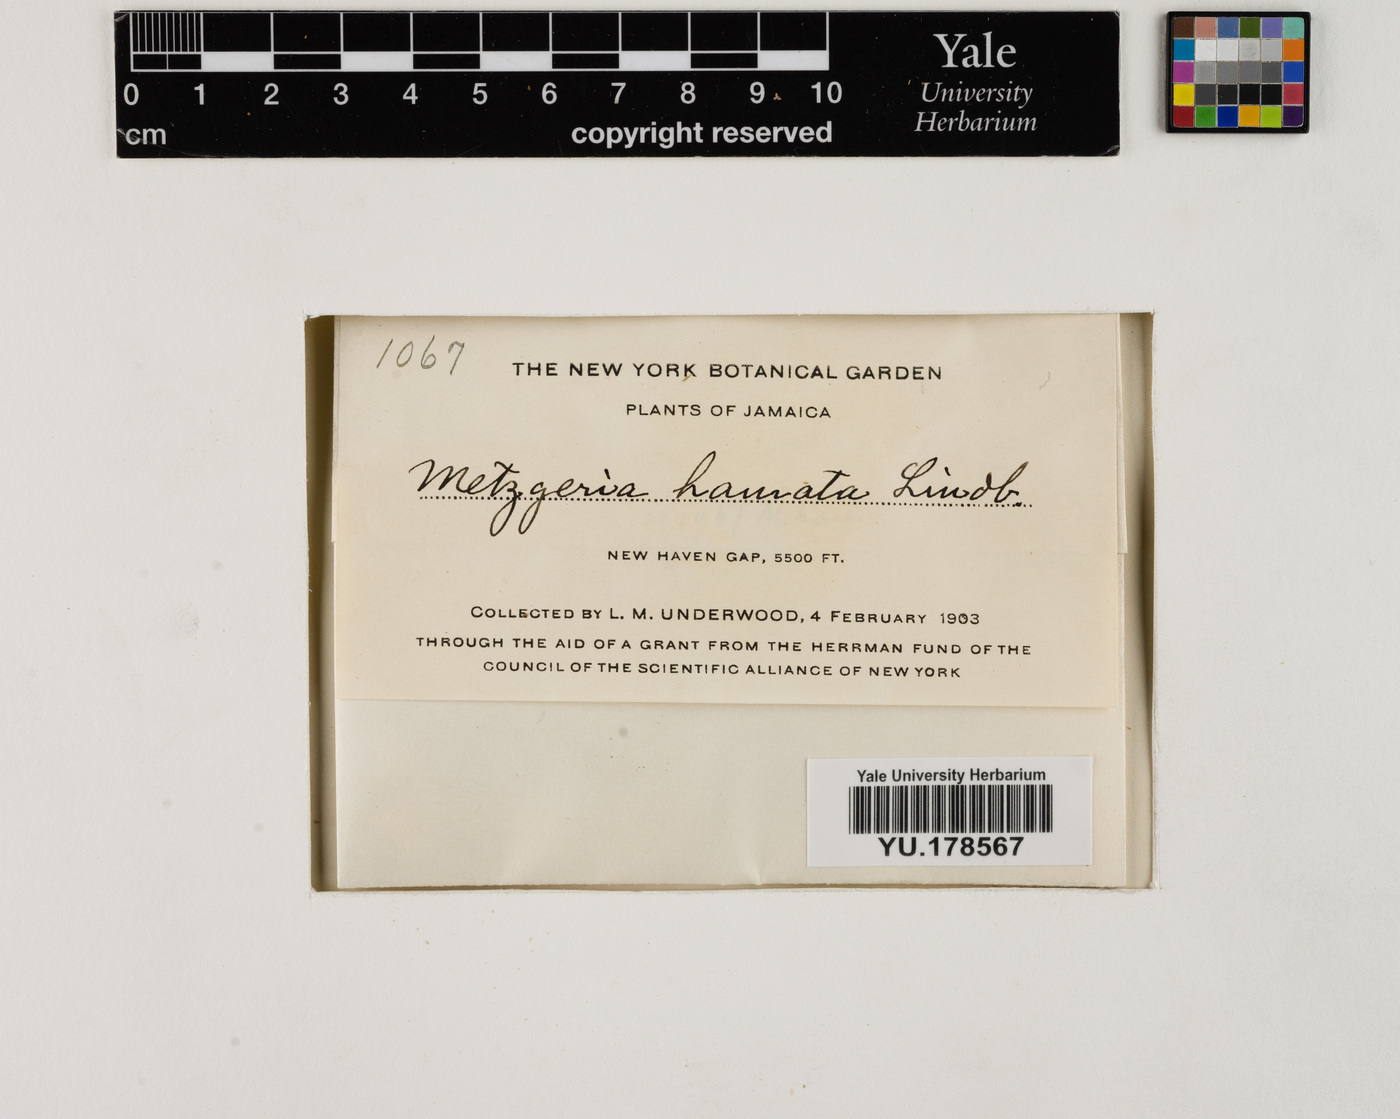 0 1 2 3 4 5 6 7 8 9 10
cm
copyright reserved
Yale
University
Herbarium
1067
THE NEW YORK BOTANICAL GARDEN
PLANTS OF JAMAICA
Metzgeria hamata Lindb.
NEW HAVEN GAP, 5500 FT.
COLLECTED BY L. M. UNDERWOOD, 4 FEBRUARY 1903
THROUGH THE AID OF A GRANT FROM THE HERRMAN FUND OF THE
COUNCIL OF THE SCIENTIFIC ALLIANCE OF NEW YORK
Yale University Herbarium
YU.178567